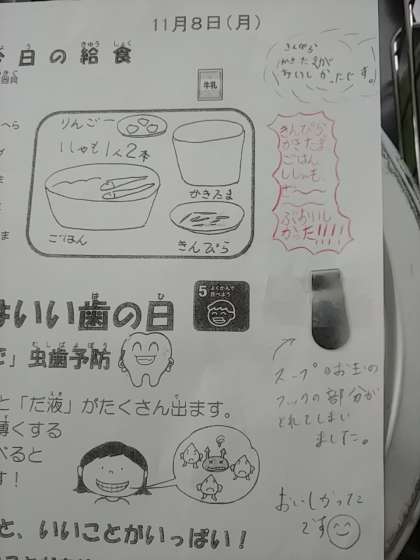 11月8日(月)
今日の給食
きゅう しょく
牛乳
りんご
ししゃも1人2本
かきたま
ごはん
きんぴら
きんぴら
かきたまが
おいしかったです。
きんぴら、
かきたま
ごはん、
ししゃも、
ぜーーんぶ
おいしかった!!!!
はいい歯の日
は ひ
5 よくかんで食べよう
虫歯予防
むしばよぼう
と「だ液」がたくさん出ます。
薄くする
べると
す!
スープのお玉の
フックの部分が
とれてしまい
ました。
おいしかった
です
と、いいことがいっぱい!